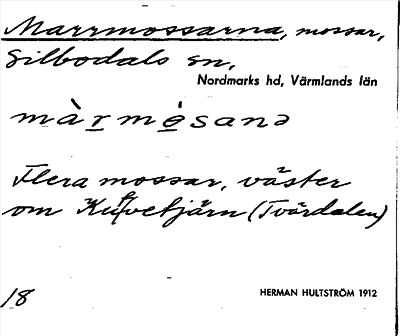 Marrmossarna, mossar,
Silbodals sn,
Nordmarks hd, Värmlands län
màrmósanə
Flera mossar, väster
om (Tvärdalen)
18
HERMAN HULTSTRÖM 1912